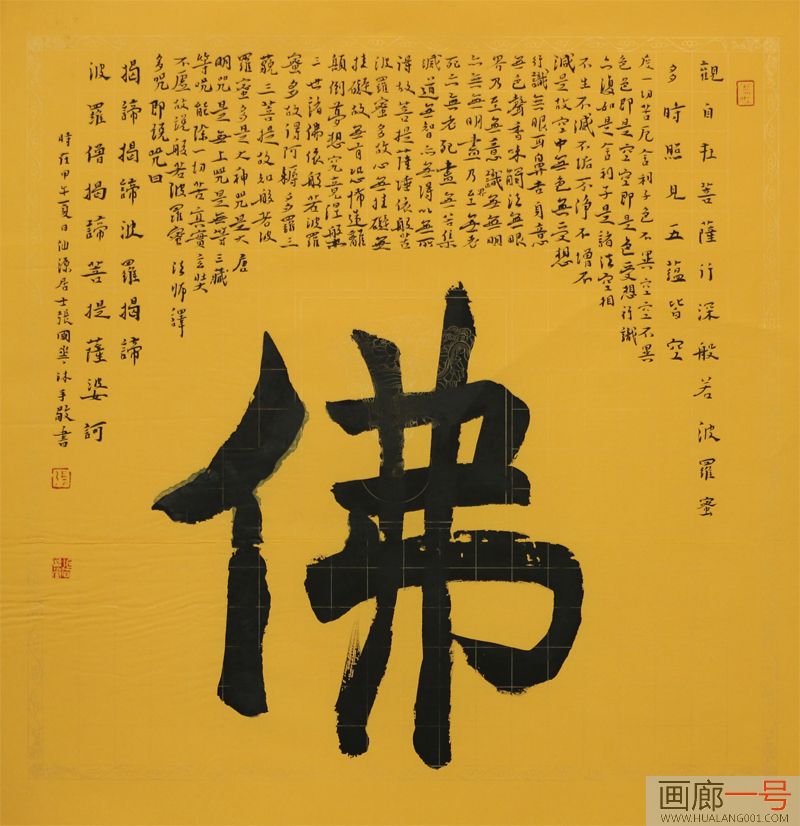 觀自在菩薩行深般若波羅蜜
多時照見五蘊皆空
度一切苦厄舍利子色不異空空不異
色色即是空空即是色受想行識
亦復如是舍利子是諸法空相
不生不滅不垢不淨不增不
減是故空中無色無受想
行識無眼耳鼻舌身意
無色聲香味觸法無眼
界乃至無意識界無無明
亦無無明盡乃至無老
死亦無老死盡無苦集
滅道無智亦無得以無所
得故菩提薩埵依般若
波羅蜜多故心無挂礙無
挂礙故無有恐怖遠離
顛倒夢想究竟涅槃
三世諸佛依般若波羅
蜜多故得阿耨多羅三
藐三菩提故知般若波
羅蜜多是大神咒是大
明咒是無上咒是無等
等咒能除一切苦真實
不虛故說般若波羅蜜
多咒即說咒曰
唐
三藏
玄奘
法師譯
揭諦揭諦波羅揭諦
波羅僧揭諦菩提薩婆訶
時在甲午夏日仙源居士張國沐手敬書
佛
画廊一号
WWW.HUALANG001.COM